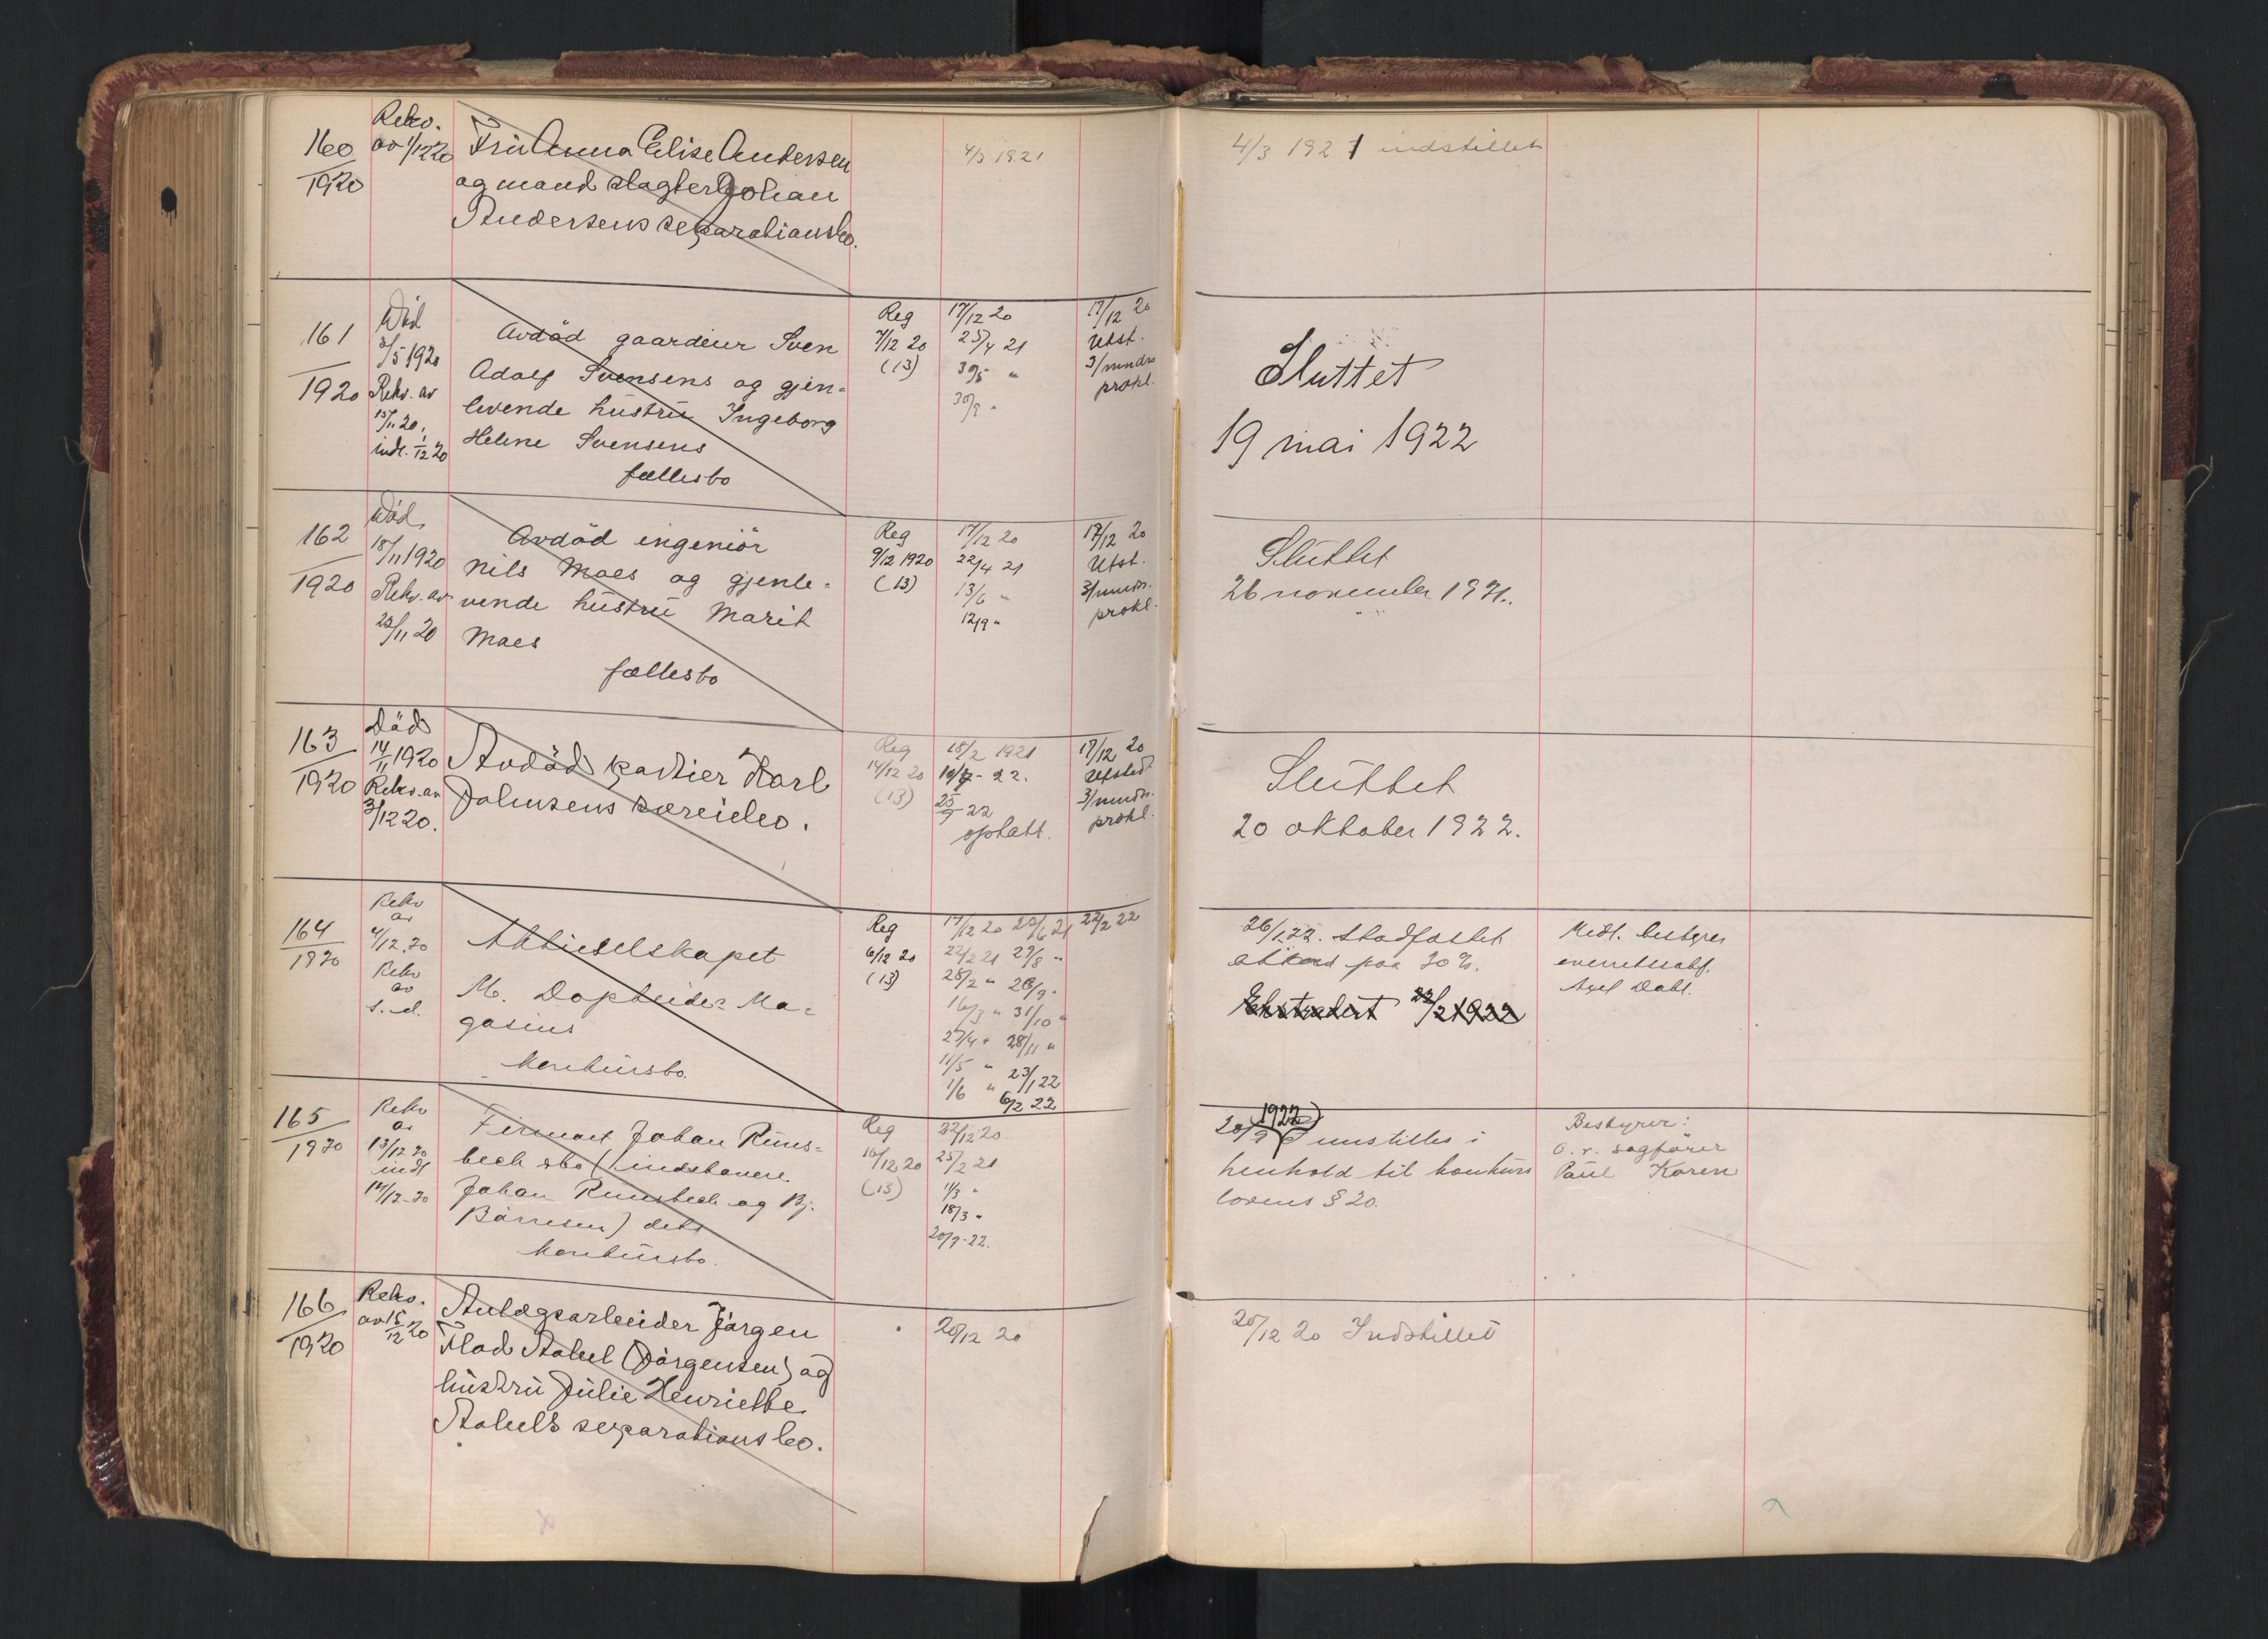 160
1920
Rekv.
av 1/12 20
Fru Anna Elise Andersen
og mand slagter Johan
Andersens separationsbo.
4/3 1921
4/3 1921 indstillet
161
1920
Död
3/5 1920
Rekv. av
15/11 20,
indk. 1/12 20
Avdöd gaardeier Sven
Adolf Svensens og gjen-
levende hustru Ingeborg
Helene Svensens
fællesbo
Reg
7/12 20
(13)
17/12 20
25/4 21
30/5 "
30/9 "
17/12 20
Utst.
3/mndrs
prokl.
Sluttet
19 mai 1922
162
1920
Död
18/11 1920
Rekv. av
23/11 20
Avdöd ingeniör
Nils Moes og gjenle-
vende hustru Marit
Moes
fællesbo
Reg
9/12 1920
(13)
17/12 20
22/4 21
13/6 "
12/9 "
17/12 20
Utst.
3/mndrs.
prokl.
Sluttet
26 november 1921.
163
1920
Död
14/11 1920
Rekv. av
3/12 20.
Avdöd portier Karl
Johnsens særeiebo.
Reg
14/12 20
(13)
18/2 1921
10/7 - 22.
25/9 22
optatt.
17/12 20
Utsted
3/mndrs.
prokl.
Sluttet
20 oktober 1922.
164
1920
Rekv
av
4/12 20
Rekv
av
s. d.
Aktieselskapet
M. Dopheide-Ma-
gasins
konkursbo.
Reg
6/12 20
(13)
17/12 20 20/6 21
22/2 21 29/8 "
28/2 " 26/9 "
16/3 " 31/10 "
27/4 " 28/11 "
11/5 " 23/1 22
1/6 " 6/2 22
22/2 22
26/1 22. stadfæstet
akkord paa 30 %.
Ekstradert 22/2 1922
Midl. bestyrer
overretssakf.
Axel Dahl.
165
1920
Rekv
av
13/12 20
indk
14/12 20
Firmaet Johan Runs-
bech &bo (indehavere
Johan Runsbech og Bj.
Börresen) dets
konkursbo.
Reg
16/12 20
(13)
22/12 20
25/2 21
1/3 "
18/3 "
20/9 - 22.
1922
20/9 Innstilles i
henhold til konkurs
lovens § 20.
Bestyrer:
o. r. sagförer
Paul Koren
166
1920
Rekv.
av 15/12 20
Anlægsarbeider Jörgen
Flod Stabel (Jörgensen) og
hustru Julie Henriette
Stabels separationsbo.
20/12 20
20/12 20 Indstillet